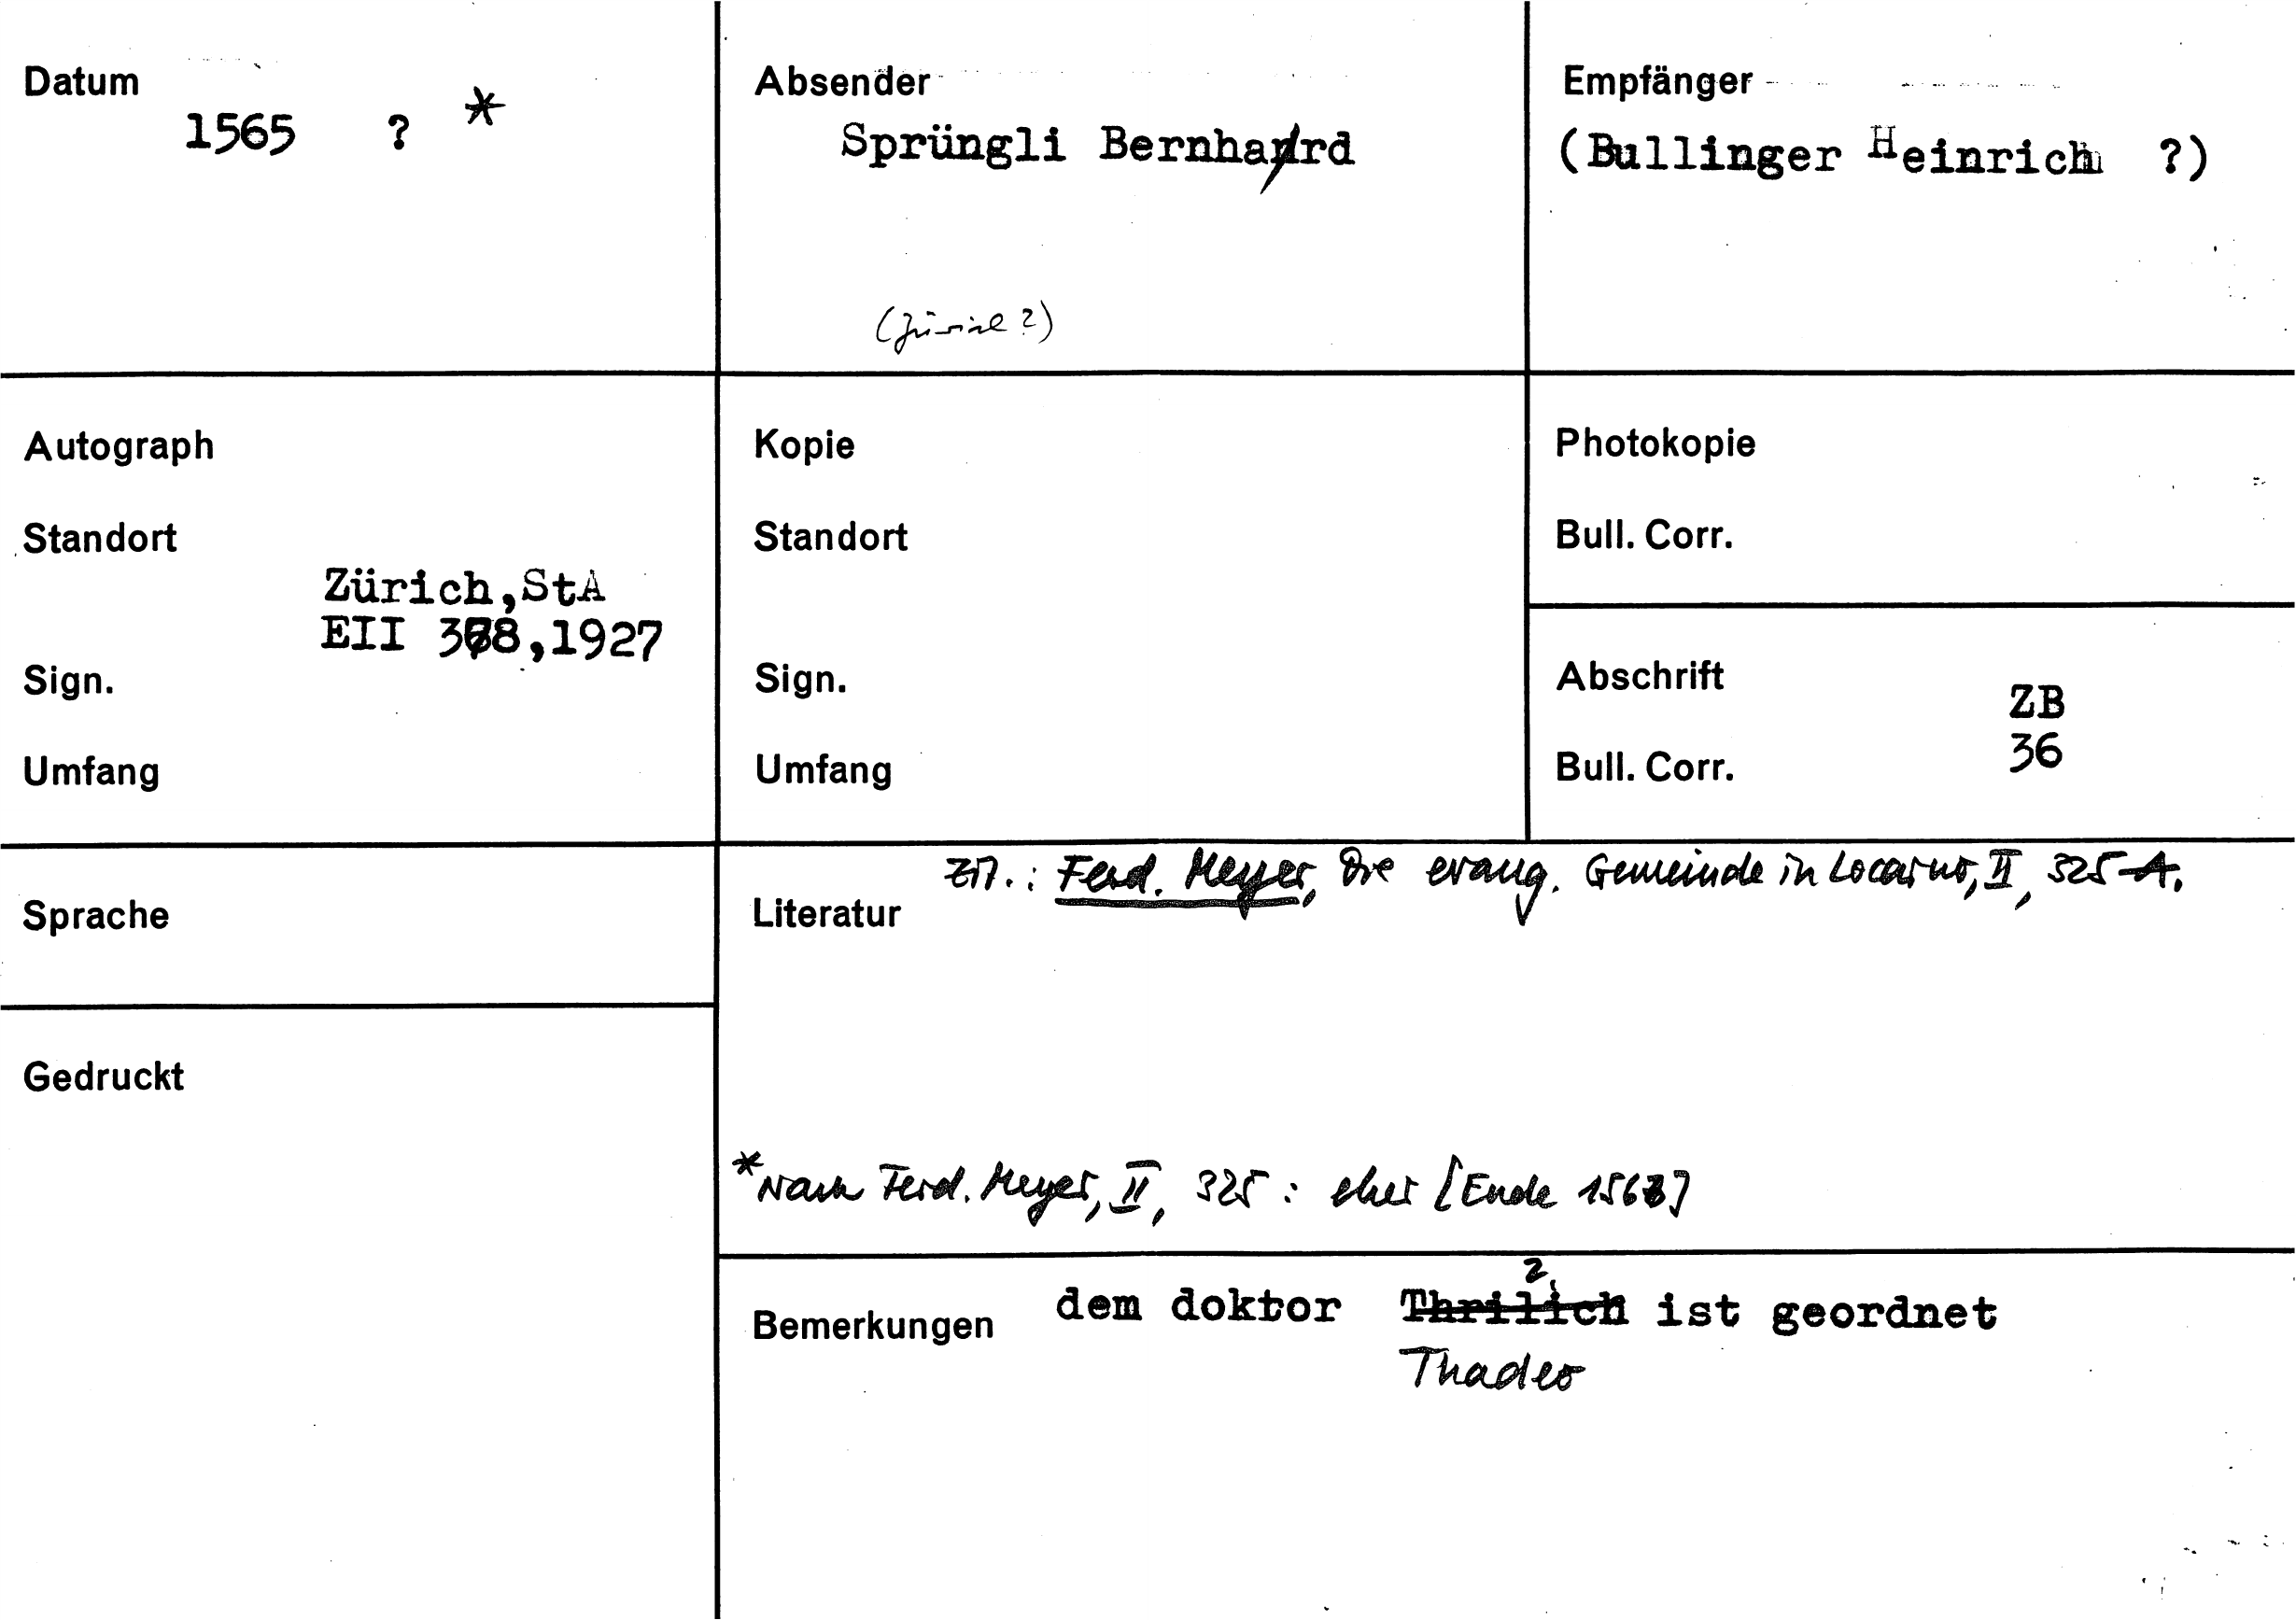 Datum
1565 ? *
Absender
Sprüngli Bernhard
(Zürich ?)
Empfänger
(Bullinger Heinrich ?)
Autograph
Standort
Zürich,StA
EII 378,1927
Sign.
Umfang
Kopie
Standort
Sign.
Umfang
Photokopie
Bull. Corr.
Abschrift
ZB
36
Bull. Corr.
Sprache
Gedruckt
Zit.: Ferd. Meyer, Die evang. Gemeinde in Locarno, II, 325 A.
Literatur
*Nach Ferd. Meyer, II, 325 : eher [Ende
Bemerkungen
dem doktor Thrilich ist geordnet
Thadeo